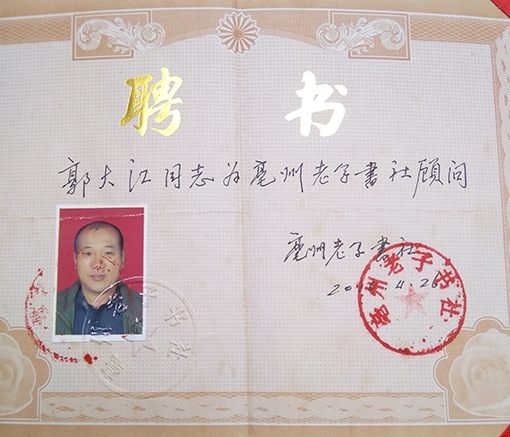 聘书
郭大江同志为亳州老子書社顾问
亳州老子書社
亳州老子书社